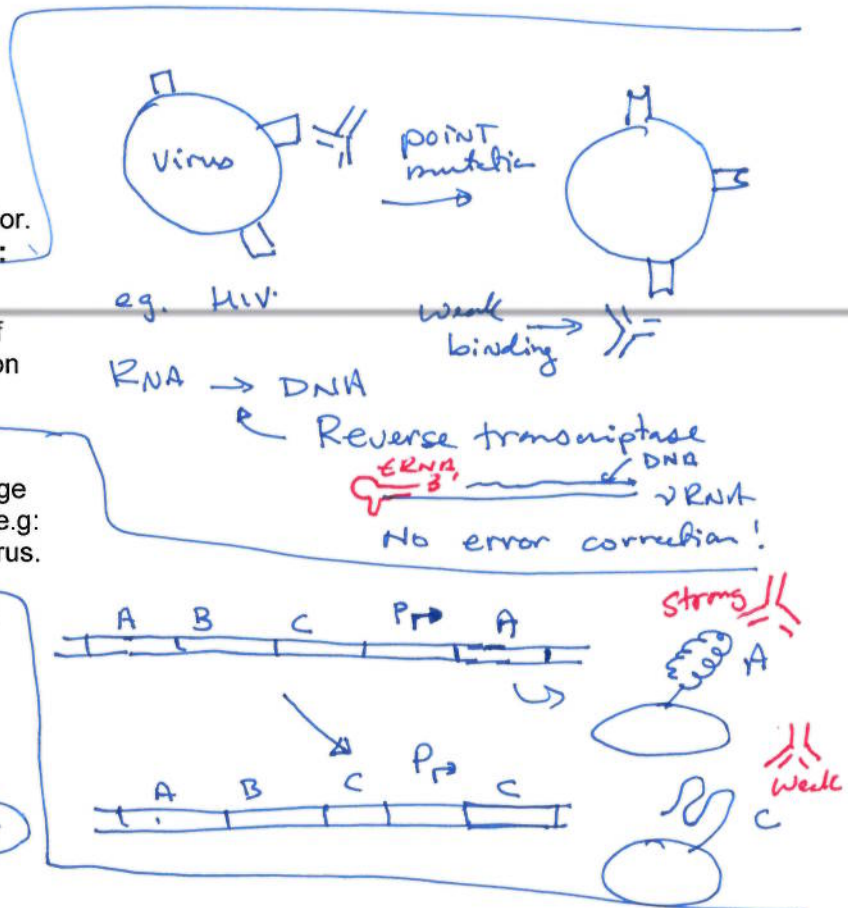 or.
:
f
on
ge
e.g:
rus.
Virus
POINT
mutation
eg. HIV.
Weak
binding
RNA → DNA
Reverse transcriptase
tRNA 3'
DNA
vRNA
No error correction!
A B C P A
Strong
A
A B C P C
Weak
C